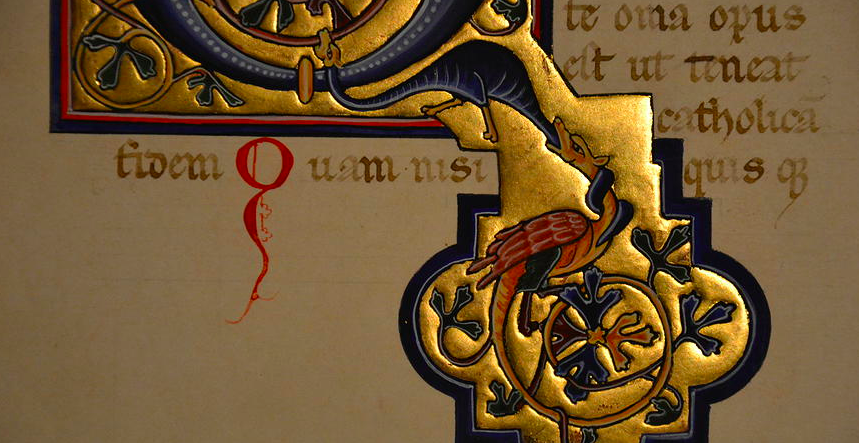 te om̄a opus
est ut teneat
catholicā
fidem Quam nisi quis qꝫ